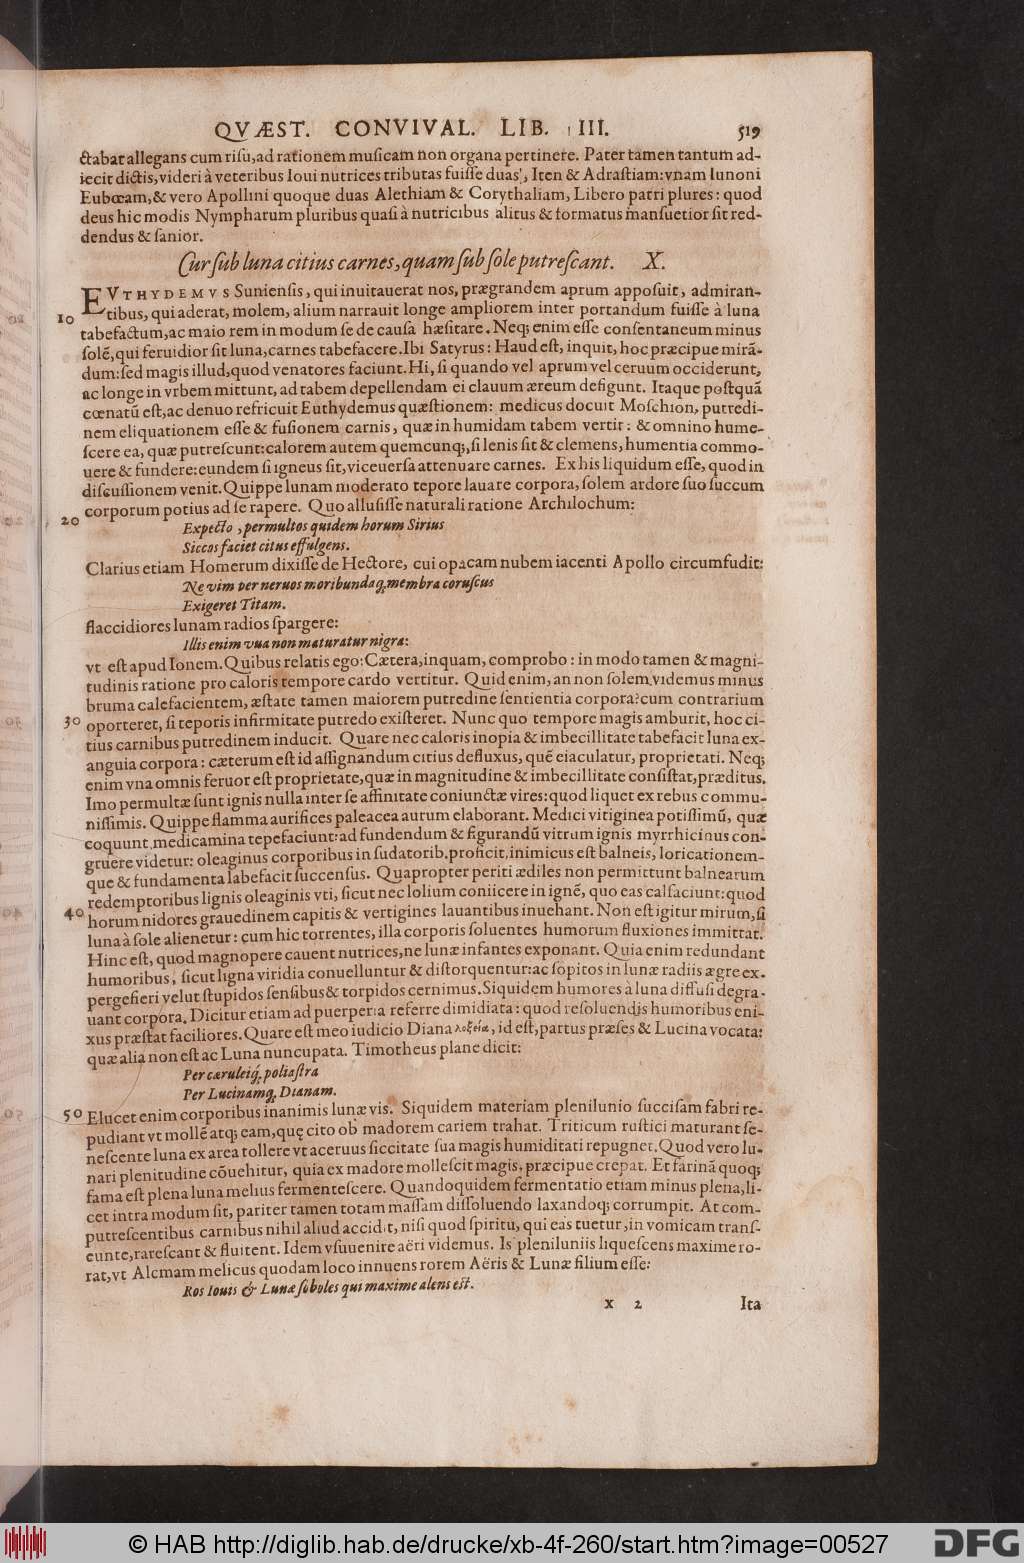 QVÆST. CONVIVAL. LIB. III. 519
ctabat allegans cum risu, ad rationem musicam non organa pertinere. Pater tamen tantum ad-
iecit dictis, videri à veteribus Ioui nutrices tributas fuisse duas, Iten & Adrastiam: vnam Iunoni
Eubœam, & vero Apollini quoque duas Alethiam & Corythaliam, Libero patri plures: quod
deus hic modis Nympharum pluribus quasi à nutricibus alitus & formatus mansuetior sit red-
dendus & sanior.
Cur sub luna citius carnes, quam sub sole putrescant. X.
EVTHYDEMVS Suniensis, qui inuitauerat nos, prægrandem aprum apposuit, admiran-
10 tibus, qui aderat, molem, alium narrauit longe ampliorem inter portandum fuisse à luna
tabefactum, ac maio rem in modum se de causa hæsitare. Neq; enim esse consentaneum minus
solē, qui feruidior sit luna, carnes tabefacere. Ibi Satyrus: Haud est, inquit, hoc præcipue mirā-
dum: sed magis illud, quod venatores faciunt. Hi, si quando vel aprum vel ceruum occiderunt,
ac longe in vrbem mittunt, ad tabem depellendam ei clauum æreum defigunt. Itaque postquā
cœnatū est, ac denuo refricuit Euthydemus quæstionem: medicus docuit Moschion, putredi-
nem eliquationem esse & fusionem carnis, quæ in humidam tabem vertit: & omnino hume-
scere ea, quæ putrescunt: calorem autem quemcunq;, si lenis sit & clemens, humentia commo-
uere & fundere: eundem si igneus sit, viceuersa attenuare carnes. Ex his liquidum esse, quod in
discussionem venit. Quippe lunam moderato tepore lauare corpora, solem ardore suo succum
corporum potius ad se rapere. Quo allusisse naturali ratione Archilochum:
20 Expecto, permultos quidem horum Sirius
Siccos faciet citus effulgens.
Clarius etiam Homerum dixisse de Hectore, cui opacam nubem iacenti Apollo circumfudit:
Ne vim per neruos moribundaq; membra coruscus
Exigeret Titam.
flaccidiores lunam radios spargere:
Illis enim vua non maturatur nigra:
vt est apud Ionem. Quibus relatis ego: Cætera, inquam, comprobo: in modo tamen & magni-
tudinis ratione pro caloris tempore cardo vertitur. Quid enim, an non solem videmus minus
bruma calefacientem, æstate tamen maiorem putredine sentientia corpora? cum contrarium
30 oporteret, si teporis infirmitate putredo existeret. Nunc quo tempore magis amburit, hoc ci-
tius carnibus putredinem inducit. Quare nec caloris inopia & imbecillitate tabefacit luna ex-
anguia corpora: cæterum est id assignandum citius defluxus, quē eiaculatur, proprietati. Neq;
enim vna omnis feruor est proprietate, quæ in magnitudine & imbecillitate consistat, præditus.
Imo permultæ sunt ignis nulla inter se affinitate coniunctæ vires: quod liquet ex rebus commu-
nissimis. Quippe flamma aurifices paleacea aurum elaborant. Medici vitiginea potissimū, quæ
coquunt medicamina tepefaciunt: ad fundendum & figurandū vitrum ignis myrrhicinus con-
gruere videtur: oleaginus corporibus in sudatorib. proficit, inimicus est balneis, loricationem-
que & fundamenta labefacit succensus. Quapropter periti ædiles non permittunt balnearum
redemptoribus lignis oleaginis vti, sicut nec lolium coniicere in ignē, quo eas calfaciunt: quod
40 horum nidores grauedinem capitis & vertigines lauantibus inuehant. Non est igitur mirum, si
luna à sole alienetur: cum hic torrentes, illa corporis soluentes humorum fluxiones immittat.
Hinc est, quod magnopere cauent nutrices, ne lunæ infantes exponant. Quia enim redundant
humoribus, sicut ligna viridia conuelluntur & distorquentur: ac sopitos in lunæ radiis ægre ex-
pergefieri velut stupidos sensibus & torpidos cernimus. Siquidem humores à luna diffusi degra-
uant corpora. Dicitur etiam ad puerperia referre dimidiata: quod resoluendis humoribus eni-
xus præstat faciliores. Quare est meo iudicio Diana λοξεία, id est, partus præses & Lucina vocata:
quæ alia non est ac Luna nuncupata. Timotheus plane dicit:
Per cæruleiq; poli astra
Per Lucinamq; Dianam.
50 Elucet enim corporibus inanimis lunæ vis. Siquidem materiam plenilunio succisam fabri re-
pudiant vt mollē atq; eam, quę cito ob madorem cariem trahat. Triticum rustici maturant se-
nescente luna ex area tollere vt aceruus siccitate sua magis humiditati repugnet. Quod vero lu-
nari plenitudine cōuehitur, quia ex madore mollescit magis, præcipue crepat. Et farinā quoq;
fama est plena luna melius fermentescere. Quandoquidem fermentatio etiam minus plena, li-
cet intra modum sit, pariter tamen totam massam dissoluendo laxandoq; corrumpit. At com-
putrescentibus carnibus nihil aliud accidit, nisi quod spiritu, qui eas tuetur, in vomicam trans-
eunte, rarescant & fluitent. Idem vsuuenire aëri videmus. Is pleniluniis liquescens maxime ro-
rat, vt Alcmam melicus quodam loco innuens rorem Aëris & Lunæ filium esse:
Ros Iouis & Lunæ soboles qui maxime alens est.
x 2 Ita
© HAB http://diglib.hab.de/drucke/xb-4f-260/start.htm?image=00527
DFG